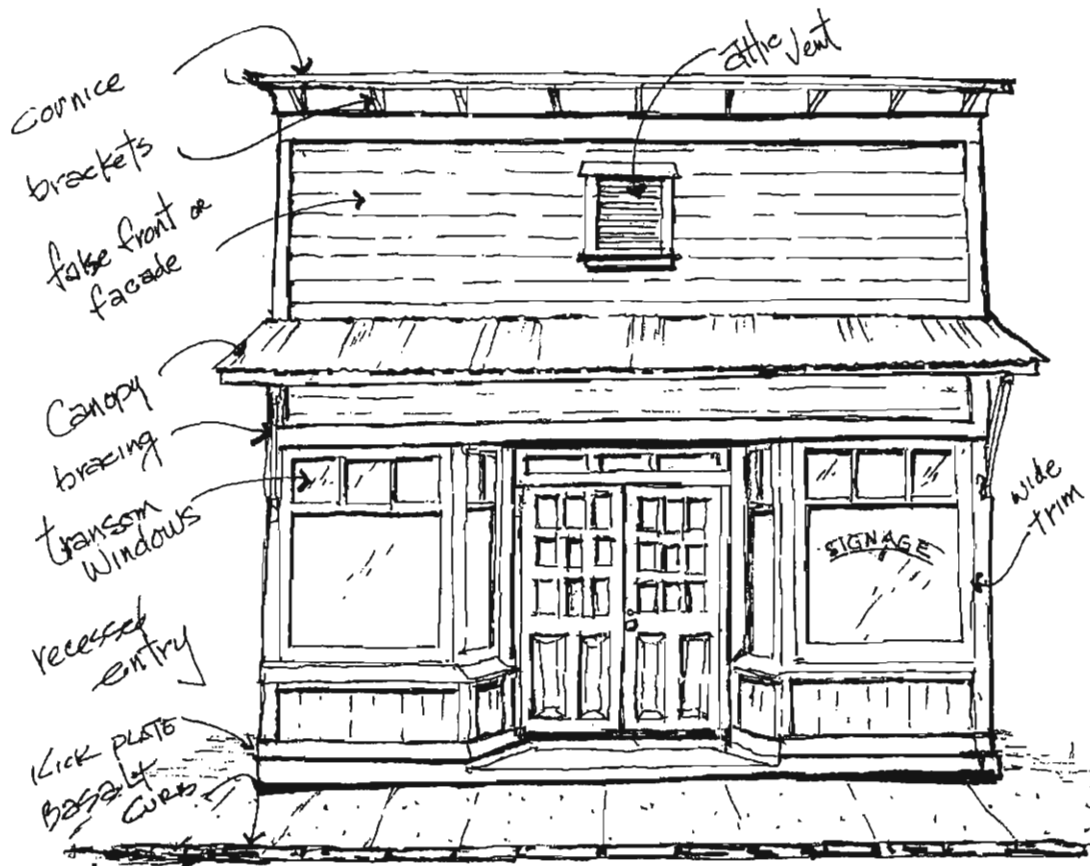 attic
vent
cornice
brackets
false front or
facade
Canopy
bracing
transom
windows
wide
trim
SIGNAGE
recessed
entry
KICK PLATE
BASALT
CURB